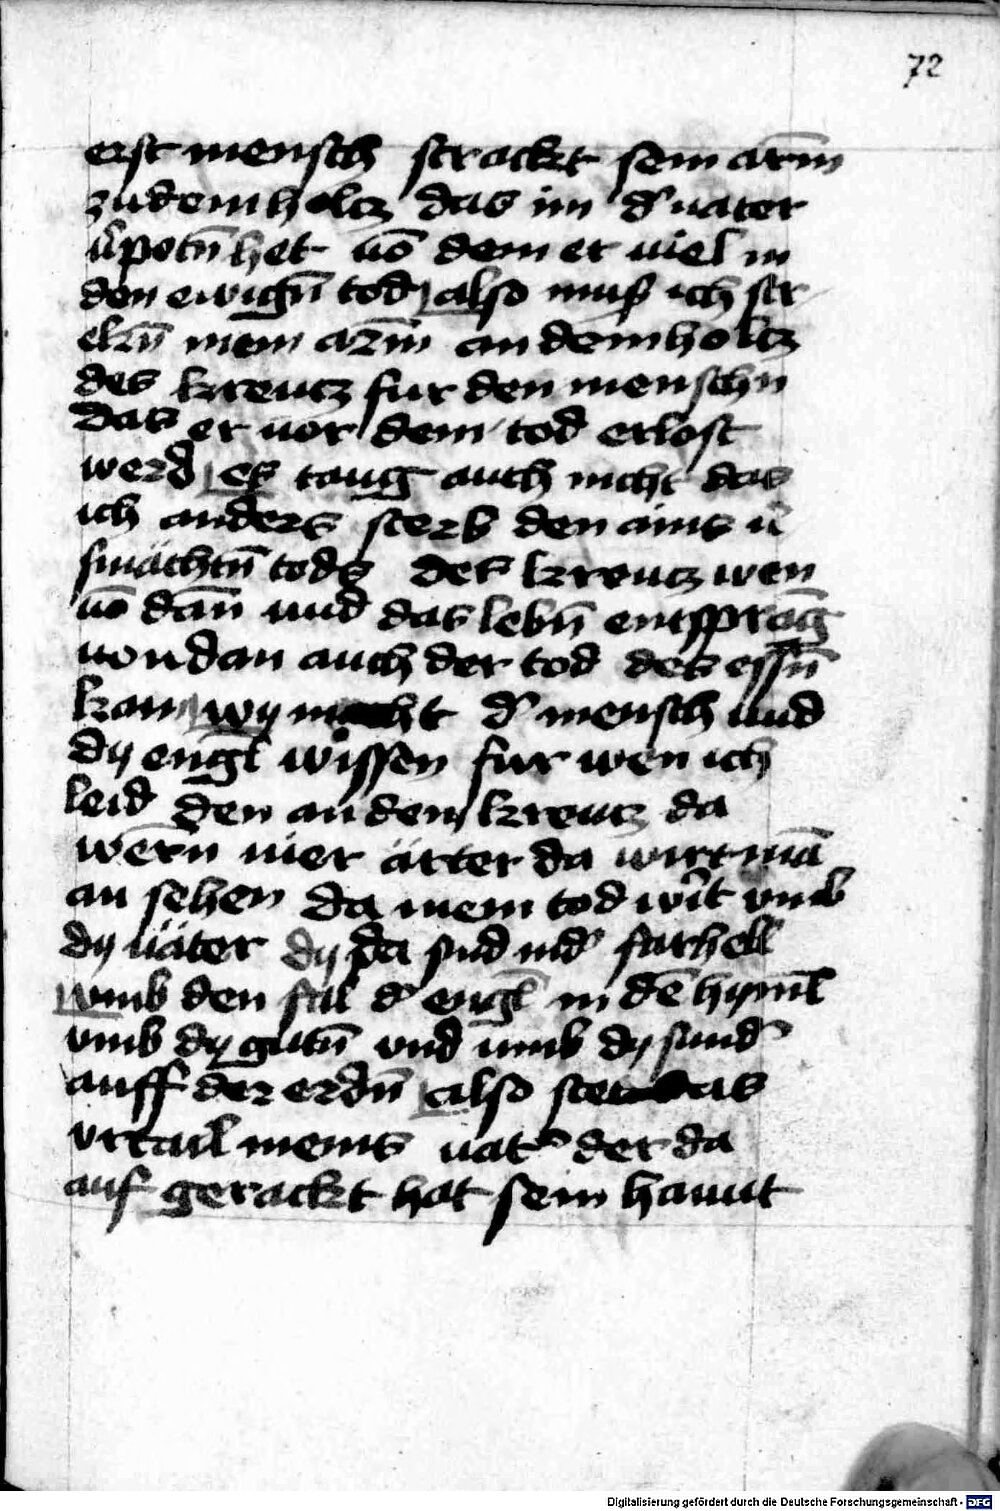 72
erst mensch strackt sein arm̄
zu dem holtz das im d' vater
v̓potn̄ het uō dem er viel in
den ewign̄ tod also muß ich str
ekn̄ mein arm̄ an dem holtz
des kreutz fur den menschn
das er vor dem tod erlost
werd es taug auch nicht das
ich anders sterb den ains v̓
smächtn̄ tods des kreutz wen
uō dan̄ und das lebn̄ entsprāg
von dan auch der tod des essn̄
kam wy mocht d' mensch und
dy engl̄ wissen fur wen ich
leid den an dem kreutz da
wern̄ vier ärter da wirt mā
an sehen da mein tod wirt vmb
dy väter dy da sind in d' farhell
vmb den fal d' engl̄ in dē hyml̄
vmb dy gutn̄ vnd umb dy sund'
auff der erdn̄ also stet das
vrtail meins vat' der da
auf gerackt hat sein hannt
Digitalisierung gefördert durch die Deutsche Forschungsgemeinschaft - DFG